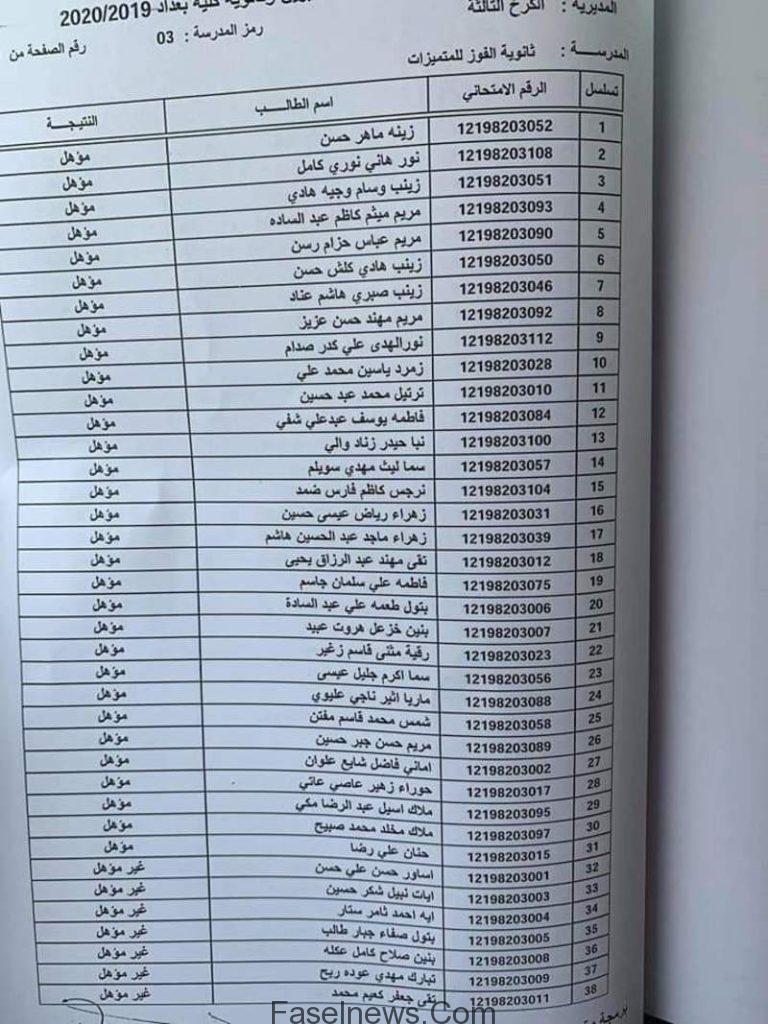 المديرية : الكرخ الثالثة
كلية بغداد 2020/2019
رمز المدرسة : 03
رقم الصفحة من
المدرســـة : ثانوية الفوز للمتميزات
تسلسل الرقم الامتحاني اسم الطالـــب النتيجـــة
1 12198203052 زينه ماهر حسن مؤهل
2 12198203108 نور هاني نوري كامل مؤهل
3 12198203051 زينب وسام وجيه هادي مؤهل
4 12198203093 مريم ميثم كاظم عبد الساده مؤهل
5 12198203090 مريم عباس حزام رسن مؤهل
6 12198203050 زينب هادي كلش حسن مؤهل
7 12198203046 زينب صبري هاشم عناد مؤهل
8 12198203092 مريم مهند حسن عزيز مؤهل
9 12198203112 نورالهدى علي كدر صدام مؤهل
10 12198203028 زمرد ياسين محمد علي مؤهل
11 12198203010 ترتيل محمد عبد حسين مؤهل
12 12198203084 فاطمه يوسف عبدعلي شفي مؤهل
13 12198203100 نبا حيدر زناد والي مؤهل
14 12198203057 سما ليث مهدي سويلم مؤهل
15 12198203104 نرجس كاظم فارس ضمد مؤهل
16 12198203031 زهراء رياض عيسى حسين مؤهل
17 12198203039 زهراء ماجد عبد الحسين هاشم مؤهل
18 12198203012 تقى مهند عبد الرزاق يحيى مؤهل
19 12198203075 فاطمه علي سلمان جاسم مؤهل
20 12198203006 بتول طعمه علي عبد السادة مؤهل
21 12198203007 بنين خزعل هروت عبيد مؤهل
22 12198203023 رقية مثنى قاسم زغير مؤهل
23 12198203056 سما اكرم جليل عيسى مؤهل
24 12198203088 ماريا اثير ناجي عليوي مؤهل
25 12198203058 شمس محمد قاسم مفتن مؤهل
26 12198203089 مريم حسن جبر حسين مؤهل
27 12198203002 اماني فاضل شايع علوان مؤهل
28 12198203017 حوراء زهير عاصي عاتي مؤهل
29 12198203095 ملاك اسيل عبد الرضا مكي مؤهل
30 12198203097 ملاك مخلد محمد صبيح مؤهل
31 12198203015 حنان علي رضا مؤهل
32 12198203001 اساور حسن علي حسن غير مؤهل
33 12198203003 ايات نبيل شكر حسين غير مؤهل
34 12198203004 ايه احمد ثامر ستار غير مؤهل
35 12198203005 بتول صفاء جبار طالب غير مؤهل
36 12198203008 بنين صلاح كامل عكله غير مؤهل
37 12198203009 تبارك مهدي عوده ربح غير مؤهل
38 12198203011 تقى جعفر كعيم محمد غير مؤهل
برمجة
Faselnews.Com